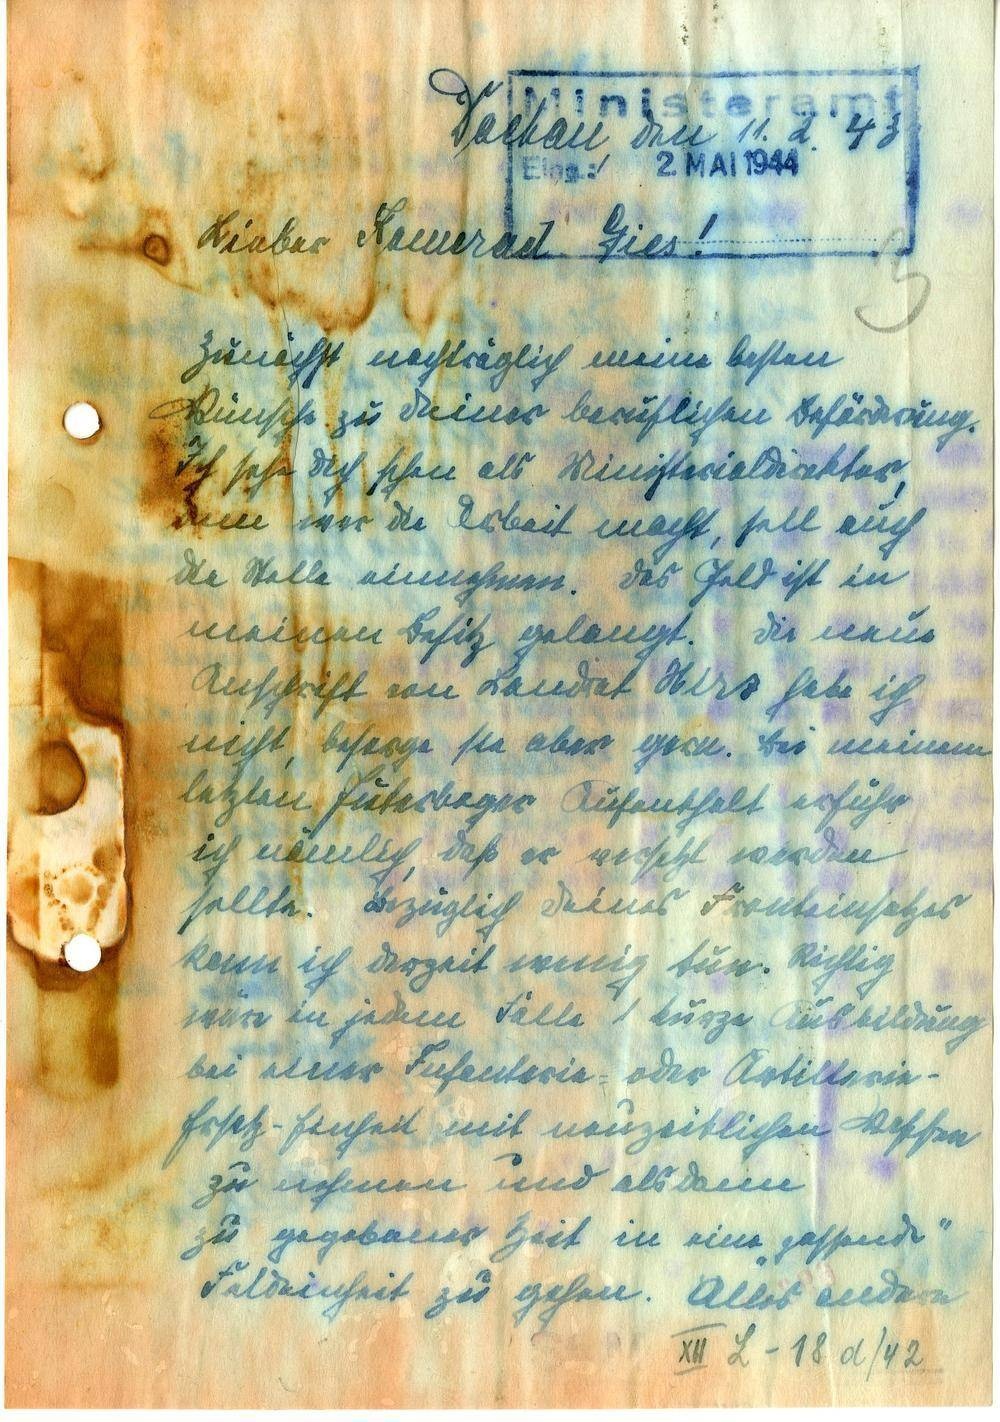 Ministeramt
Eing.: 2. MAI 1944
Dachau den 11. 2. 43
Lieber Kamerad Gies!
Zunächst nachträglich meine besten
Wünsche zu Deiner beruflichen Beförderung.
Ich sehe Dich schon als Ministerialdirektor,
denn wer die Arbeit macht, soll auch
die Stelle einnehmen. Das Geld ist in
meinen Besitz gelangt. Die neue
Anschrift von Landrat habe ich
nicht, besorge sie aber gern. Bei meinem
letzten Jüterboger Aufenthalt erfuhr
ich nämlich, daß er versetzt werden
sollte. Bezüglich Deines Fronteinsatzes
kann ich derzeit wenig tun. Richtig
wäre in jedem Falle 1 kurze Ausbildung
bei einer Infanterie- oder Artillerie-
Ersatz-Einheit mit neuzeitlichen Waffen
zu nehmen und alsdann
zu gegebener Zeit in eine „passende"
Feldeinheit zu gehen. Alles andere
XII L - 18 d/42